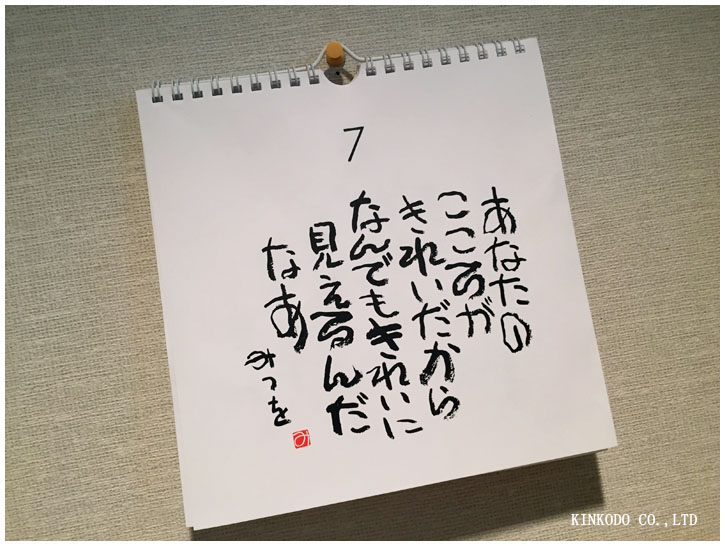 7
あなたの
こころが
きれいだから
なんでもきれいに
見えるんだ
なあ
みつを
み
KINKODO CO.,LTD